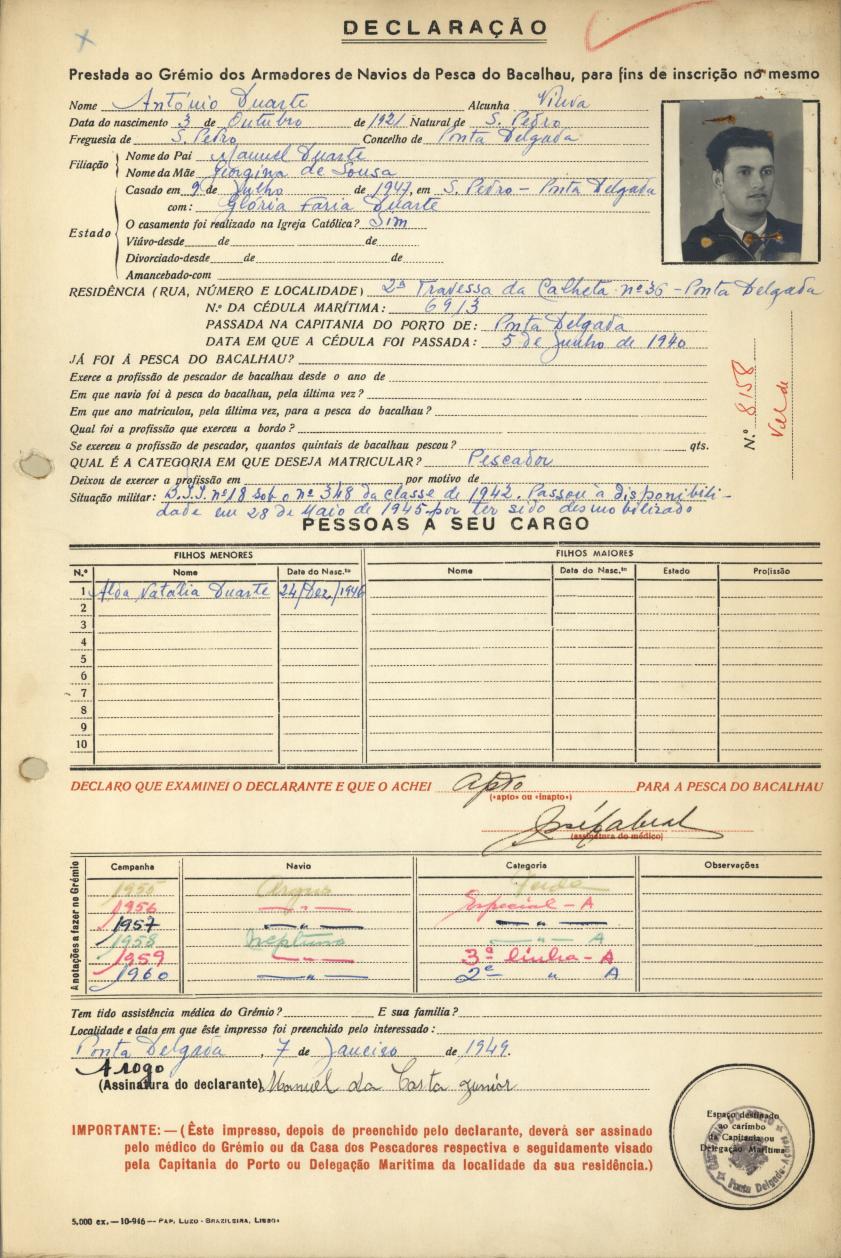 DECLARAÇÃO
Prestada ao Grémio dos Armadores de Navios da Pesca do Bacalhau, para fins de inscrição no mesmo
Nome António Duarte Alcunha
Data do nascimento 3 de Outubro de 1921 Natural de S. Pedro
Freguesia de S. Pedro Concelho de Ponta Delgada
Filiação Nome do Pai Manuel Duarte
Nome da Mãe Georgina de Sousa
Estado Casado em 9 de Julho de 1947, em S. Pedro - Ponta Delgada
com: Glória Faria Duarte
O casamento foi realizado na Igreja Católica? Sim
Viúvo-desde de de
Divorciado-desde de de
Amancebado-com
RESIDÊNCIA (RUA, NÚMERO E LOCALIDADE) 2ª Travessa da Calheta nº 36 - Ponta Delgada
N.º DA CÉDULA MARÍTIMA: 6913
PASSADA NA CAPITANIA DO PORTO DE: Ponta Delgada
DATA EM QUE A CÉDULA FOI PASSADA: 5 de Junho de 1940
JÁ FOI Á PESCA DO BACALHAU?
Exerce a profissão de pescador de bacalhau desde o ano de
Em que navio foi à pesca do bacalhau, pela última vez?
Em que ano matriculou, pela última vez, para a pesca do bacalhau?
Qual foi a profissão que exerceu a bordo?
Se exerceu a profissão de pescador, quantos quintais de bacalhau pescou? qts.
N.º 8158
Verde
QUAL É A CATEGORIA EM QUE DESEJA MATRICULAR? Pescador
Deixou de exercer a profissão em por motivo de
Situação militar: B.I.I. nº 18 sob o nº 348 da classe de 1942. Passou à disponibili-
dade em 28 de Maio de 1945 por ter sido desmobilizado
PESSOAS A SEU CARGO
FILHOS MENORES FILHOS MAIORES
N.º Nome Data do Nasc.to Nome Data do Nasc.to Estado Profissão
1 Alda Natália Duarte 24/Dez/1946
2
3
4
5
6
7
8
9
10
DECLARO QUE EXAMINEI O DECLARANTE E QUE O ACHEI Apto PARA A PESCA DO BACALHAU
(«apto» ou «inapto»)
(assinatura do médico)
Anotações a fazer no Grémio
Campanha Navio Categoria Observações
1955 Argus Verde
1956 — " — Especial - A
1957 — " — — " —
1958 Neptuno — " — A
1959 — " — 3ª linha - A
1960 — " — 2ª " A
Tem tido assistência médica do Grémio? E sua família?
Localidade e data em que êste impresso foi preenchido pelo interessado:
Ponta Delgada, 7 de Janeiro de 1949.
A rogo
(Assinatura do declarante) Manuel da Costa Junior
IMPORTANTE: — (Êste impresso, depois de preenchido pelo declarante, deverá ser assinado
pelo médico do Grémio ou da Casa dos Pescadores respectiva e seguidamente visado
pela Capitania do Porto ou Delegação Marítima da localidade da sua residência.)
Espaço destinado
ao carimbo
da Capitania ou
Delegação Marítima
Ponta Delgada
5.000 ex. — 10-946 — PAP. LUZO-BRAZILEIRA, LISBOA